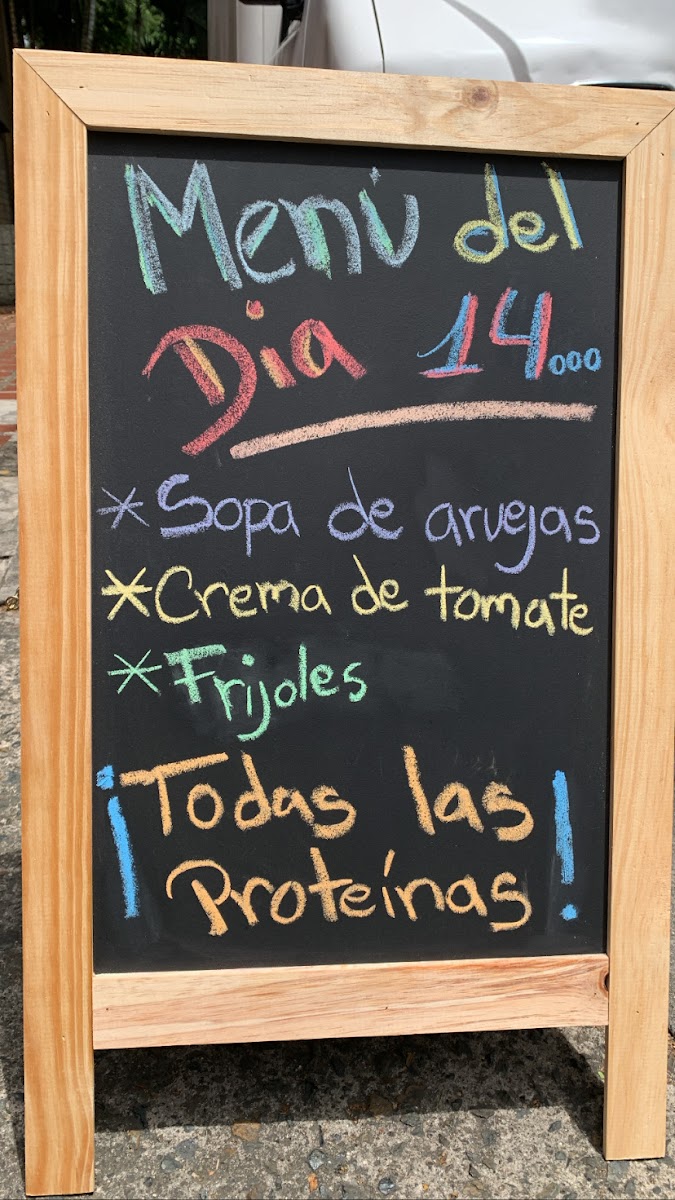 Menú del
Dia 14.000
*Sopa de arvejas
*Crema de tomate
*Frijoles
¡Todas las
Proteínas!